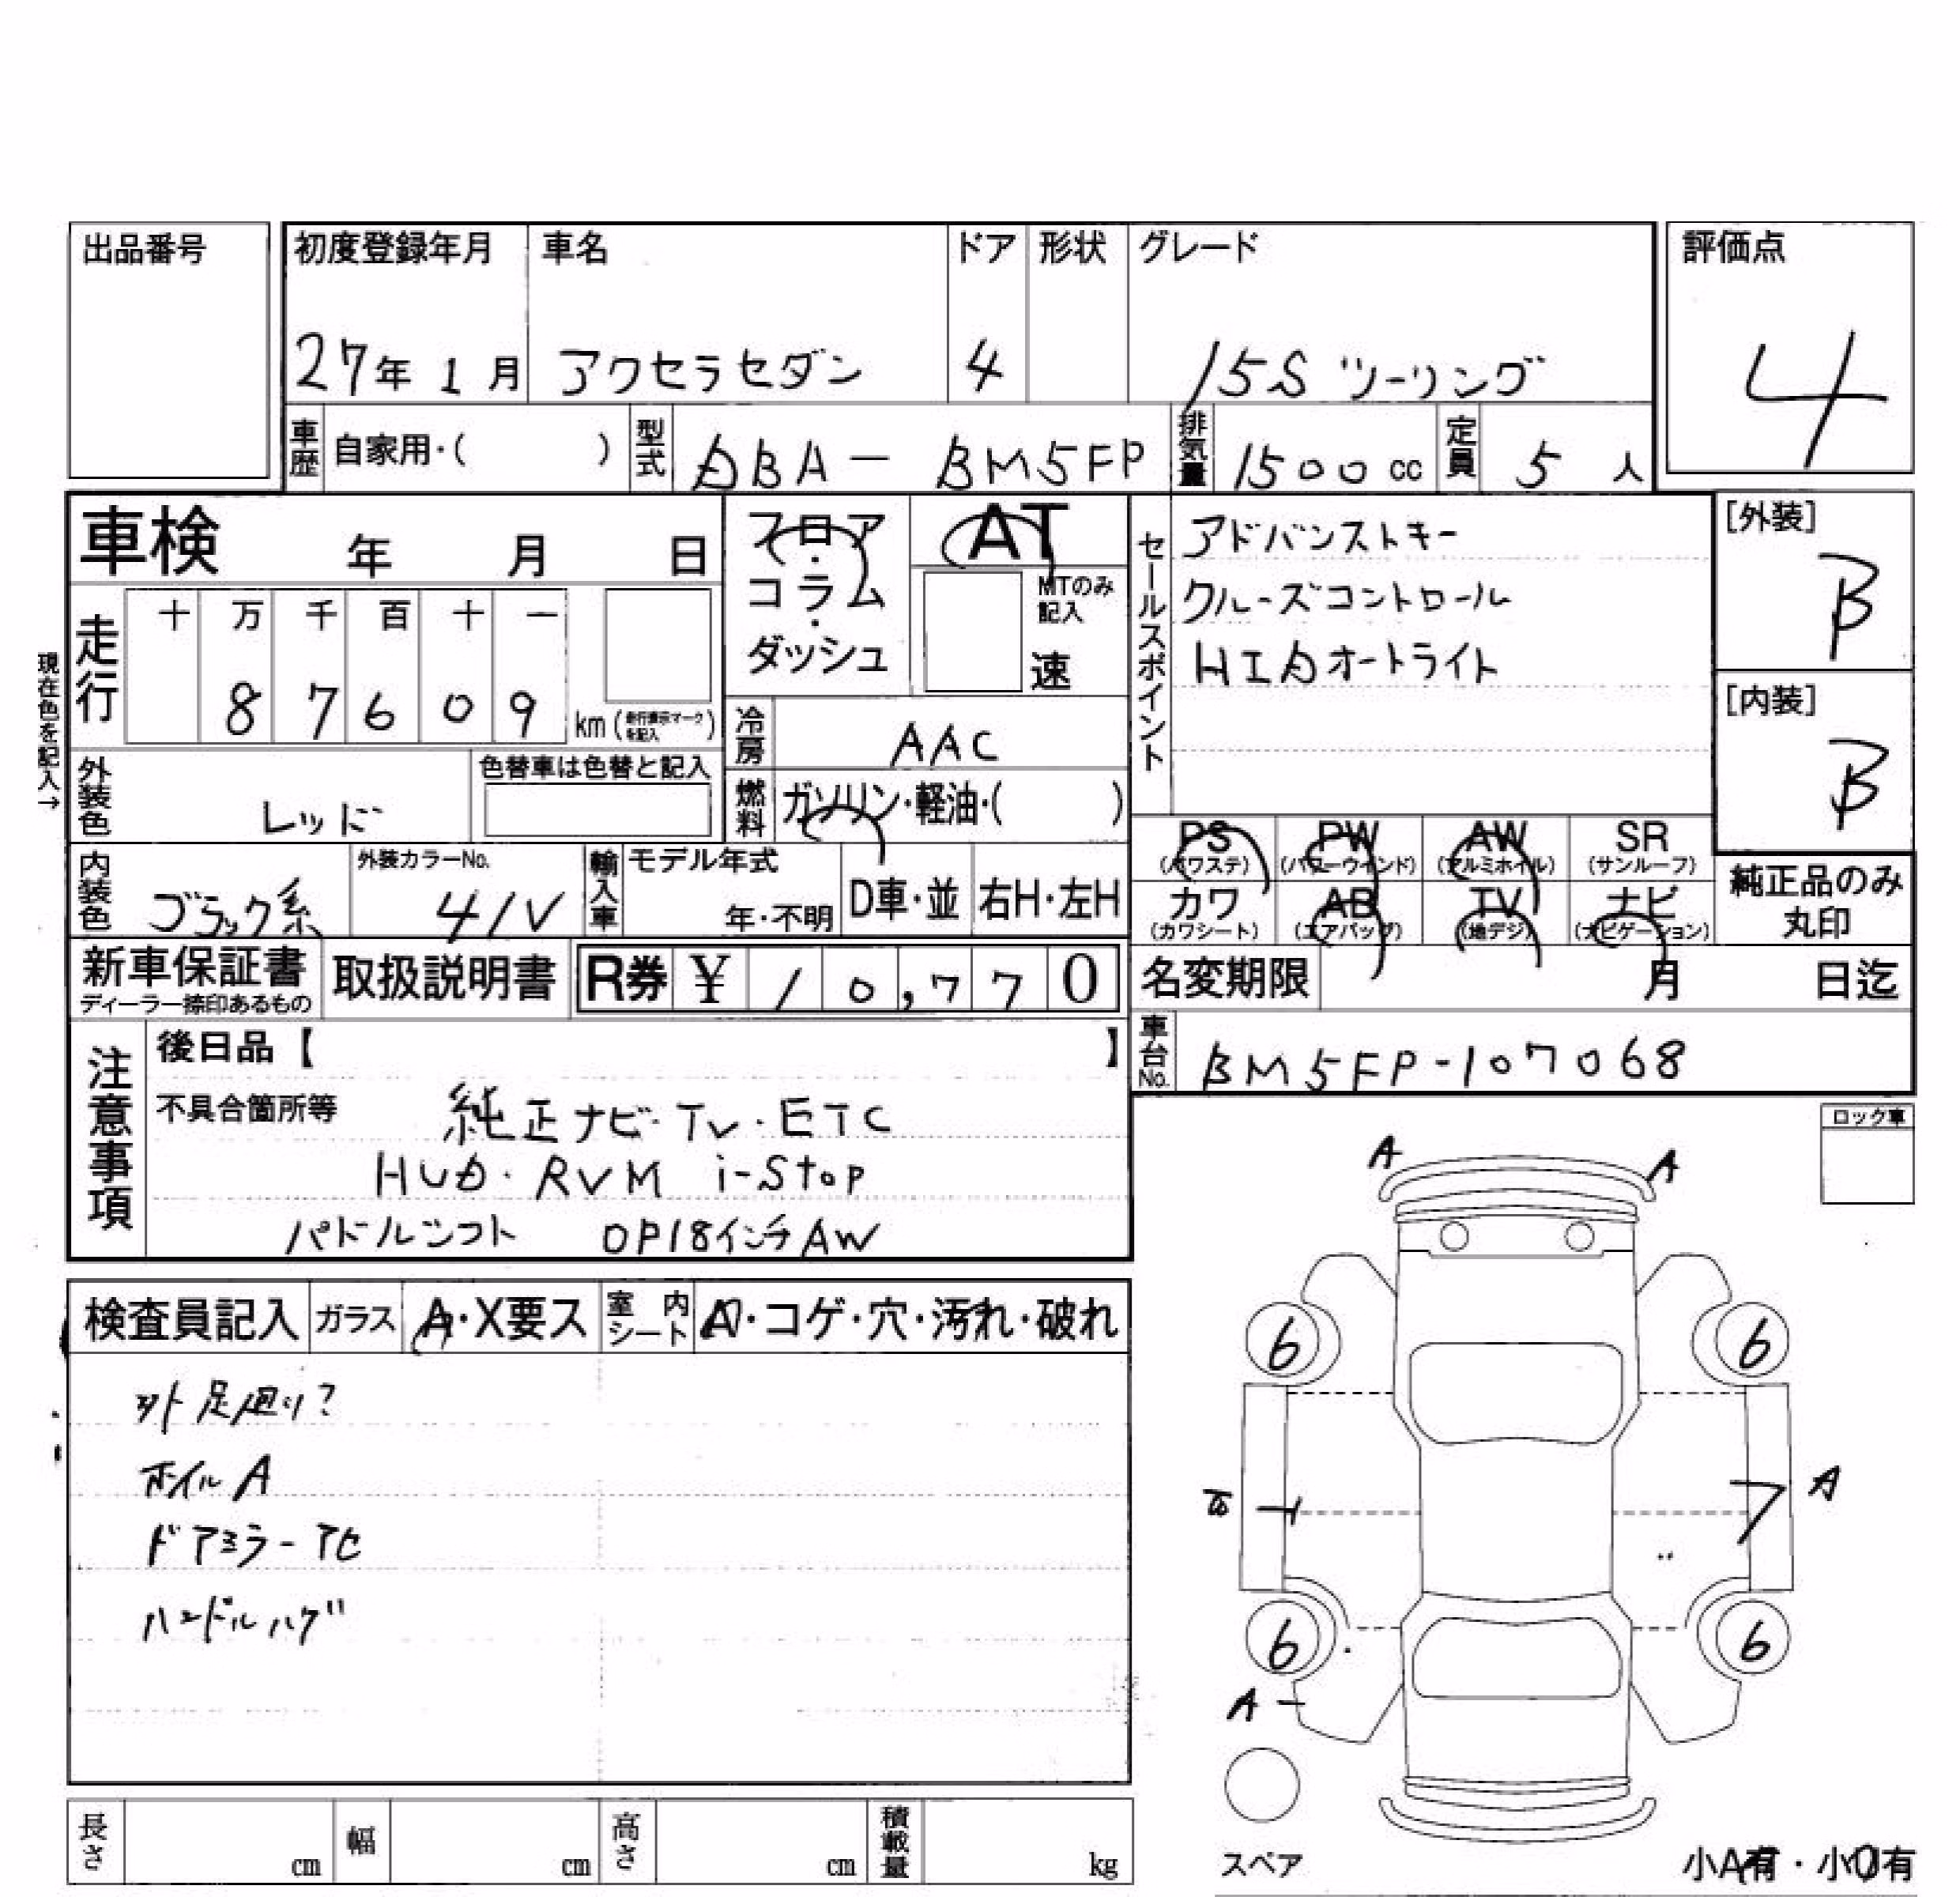 出品番号
初度登録年月 車名 ドア 形状 グレード 評価点
27年 1月 アクセラセダン 4 15S ツーリング 4
車歴 自家用・( ) 型式 DBA- BM5FP 排気量 1500cc 定員 5人
車検 年 月 日
フロア・コラム・ダッシュ
AT
MTのみ記入
速
セールスポイント
アドバンストキー
クルーズコントロール
HIDオートライト
[外装]
B
[内装]
B
現在色を記入→
走行 十 万 千 百 十 一
8 7 6 0 9 km (走行表示マークを記入)
冷房 AAC
燃料 ガソリン・軽油・( )
外装色 レッド 色替車は色替と記入
内装色 ブラック系 外装カラーNo. 41V 輸入車 モデル年式 年・不明 D車・並 右H・左H
PS (パワステ) PW (パワーウインド) AW (アルミホイル) SR (サンルーフ)
カワ (カワシート) AB (エアバッグ) TV (地デジ) ナビ (ナビゲーション)
純正品のみ丸印
新車保証書 ディーラー捺印あるもの 取扱説明書 R券 ¥ 10,770
名変期限 月 日迄
車台No. BM5FP-107068
注意事項
後日品【 】
不具合箇所等 純正ナビ・TV・ETC
HUD・RVM i-stop
パドルシフト OP18インチAW
ロック車
検査員記入 ガラス A・X要ス 室内シート A・コゲ・穴・汚れ・破れ
外 足廻り?
ホイルA
ドアミラーアセ
ハンドルハゲ
A A
6 6
A
6 6
A
スペア
小A有・小U有
長さ cm 幅 cm 高さ cm 積載量 kg